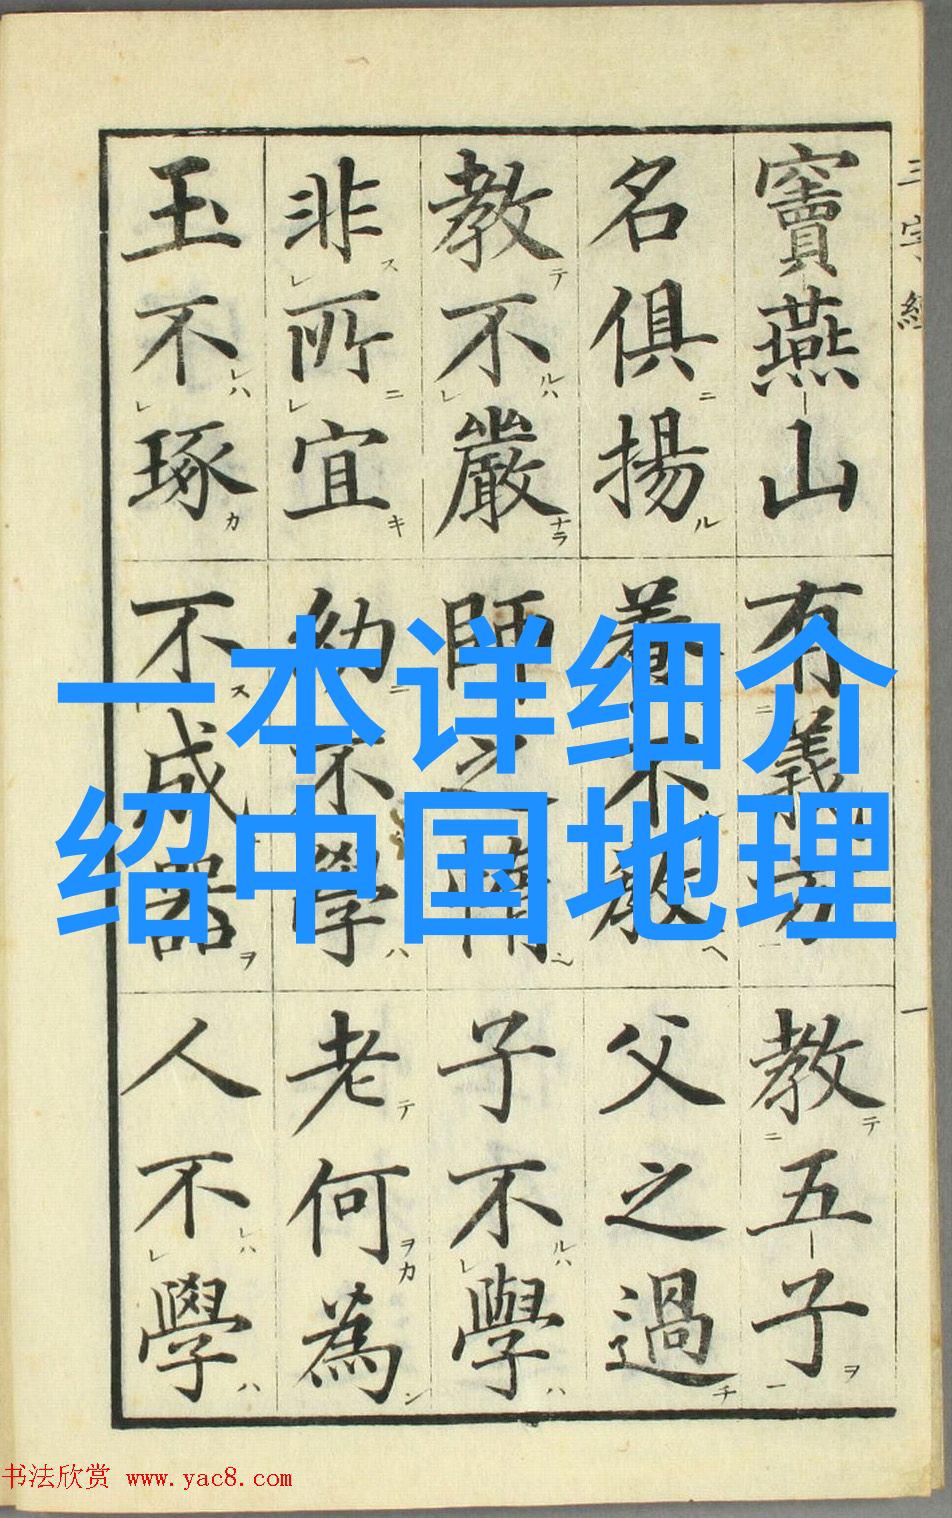 三字經 一
竇燕山有義方教五子
名俱揚養不教父之過
教不嚴師之惰子不學
非所宜幼不學老何為
玉不琢不成器人不學
一本详细介
绍中国地理
书法欣赏 www.yac8.com